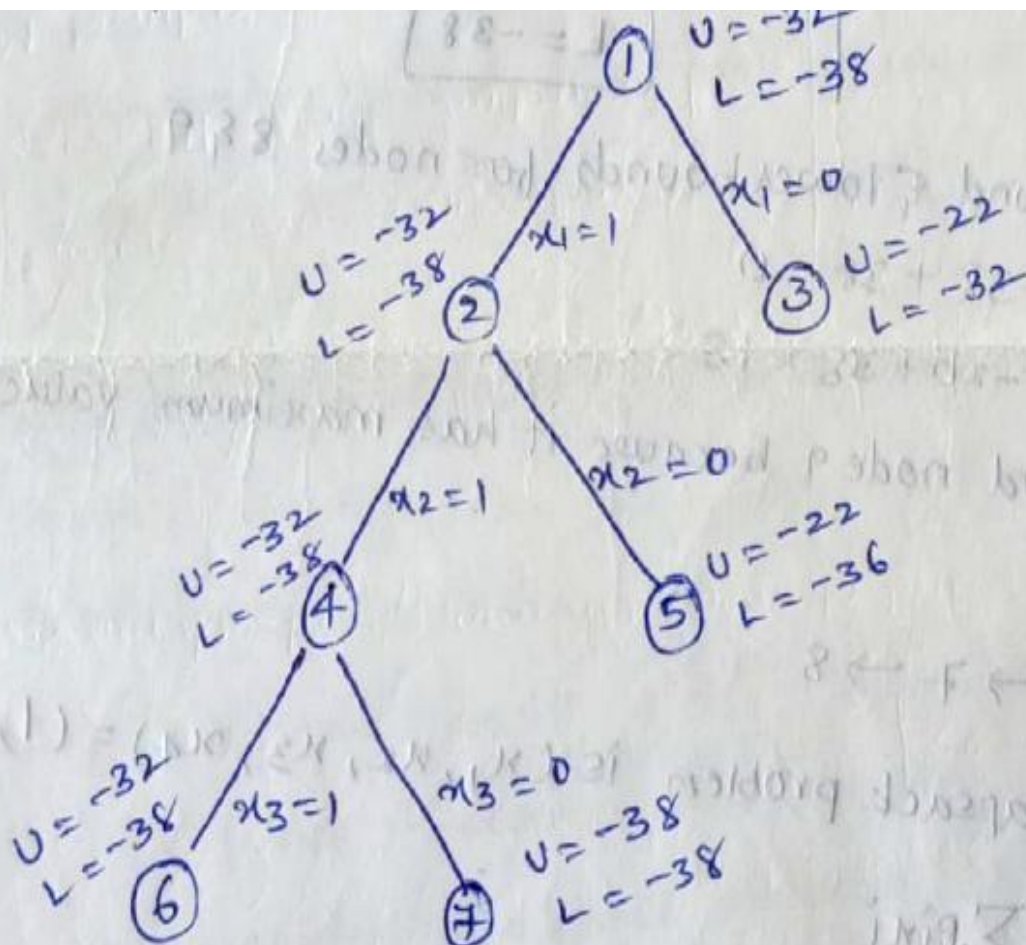 1
U = -32
L = -38
x1=1
x1=0
U = -32
L = -38
2
3
U = -22
L = -32
x2=1
x2=0
U = -32
L = -38
4
5
U = -22
L = -36
x3=1
x3=0
U = -32
L = -38
6
7
U = -38
L = -38